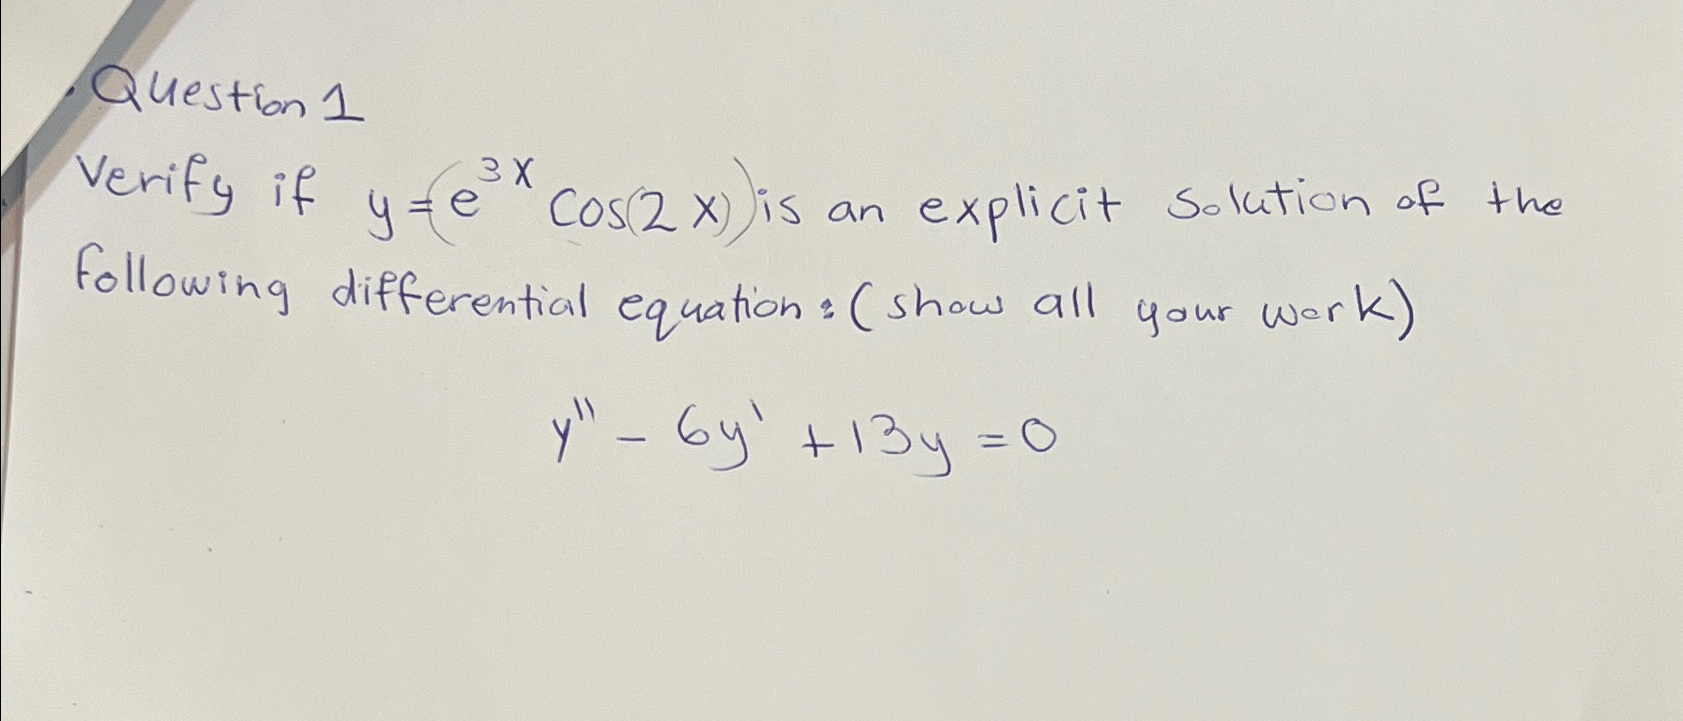 Question 1
Verify if y=(e^{3x} cos(2x)) is an explicit solution of the
following differential equation: (show all your work)
y'' - 6y' + 13y = 0